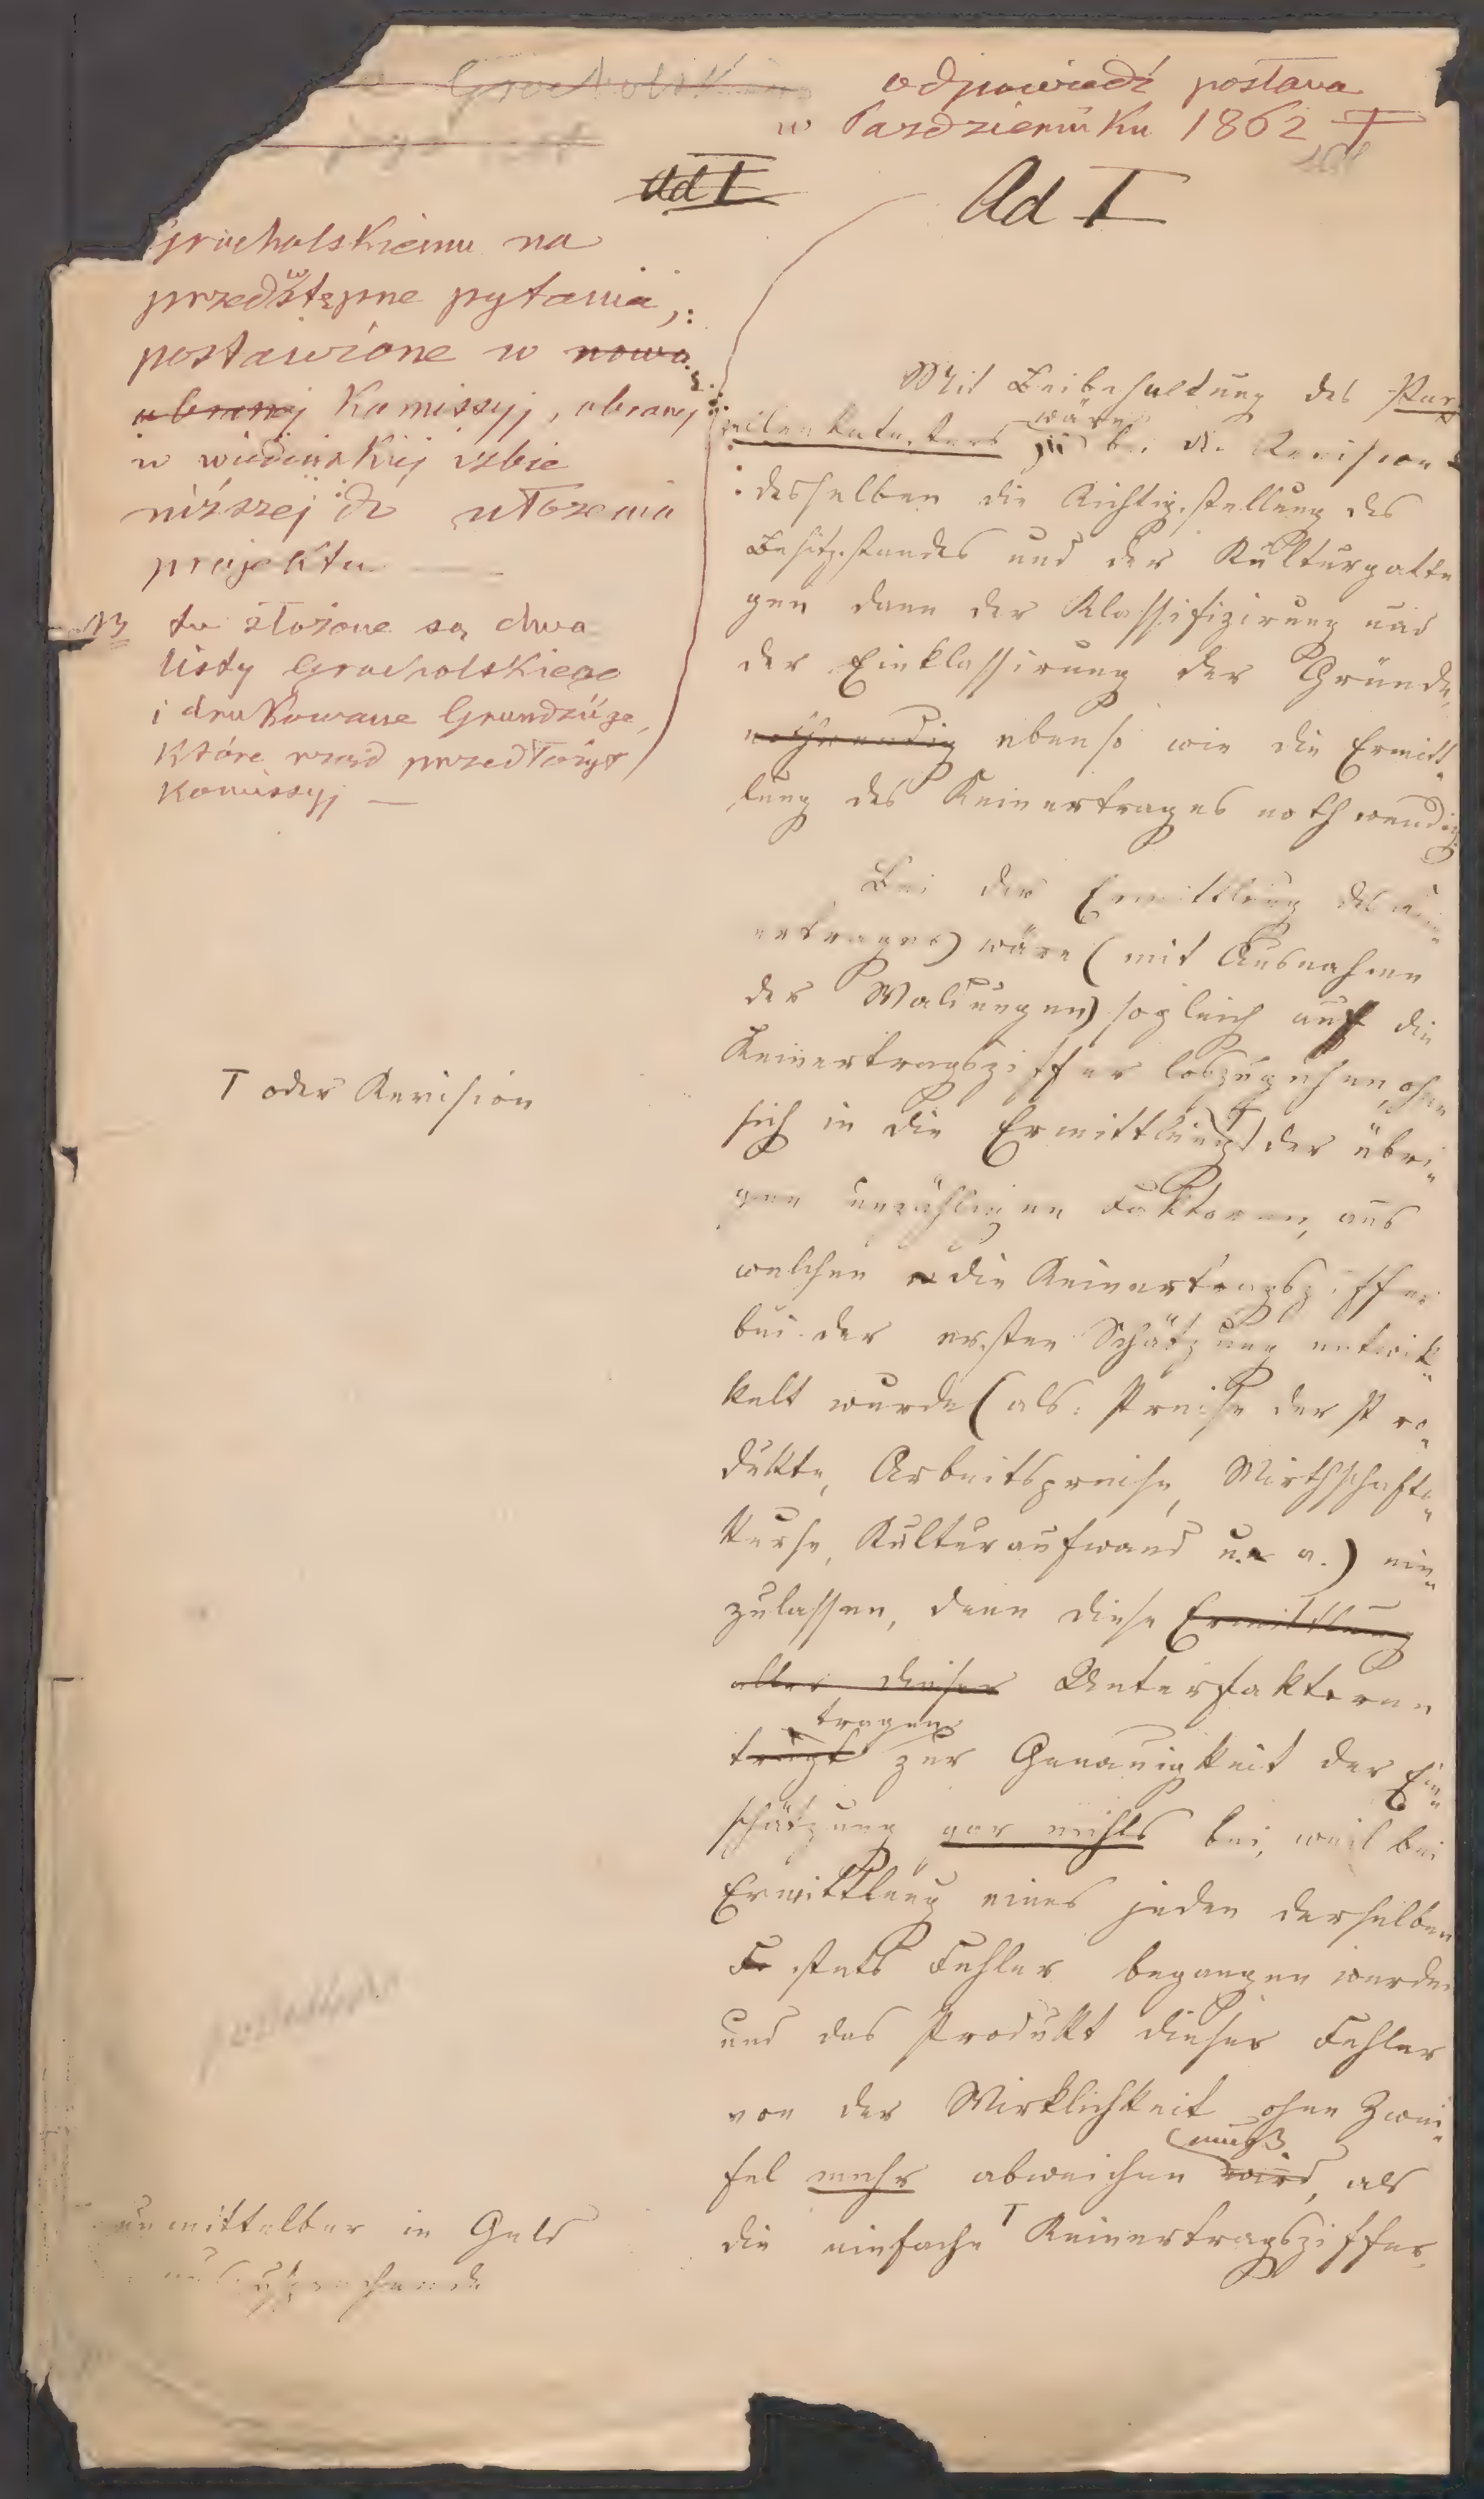 Grocholskiemu
odpowiedź postana
w Pazdzierniku 1862
Ad I
Ad I
Grocholskiemu na
przedwstępne pytania,
postawione w nowo
obranej Komissyj, obranej
w wiedeńskiej izbie
niższej do ułożenia
projektu —
NB tu złożone są dwa
listy Grocholskiego
i drukowane Grundzüge,
które rząd przedłożył
Komissyj —
Mit Beibehaltung des Par-
zellenkatasters wäre bei der Revision
desselben die Richtigstellung des
Besitzstandes und der Kulturgattun
gen dann der Klassifizirung und
der Einklassirung der Gründe,
nothwendig ebenso wie die Ermitt-
lung des Reinertrages nothwendig
Bei der Ermittlung des Rein-
ertrages) wäre (mit Ausnahme
der Waldungen) sogleich auf die
Reinertragsziffer loszugehen, ohne
sich in die Ermittlung T der übri-
T oder Revision
gen unzähligen Faktoren, aus
welchen die Reinertragsziffer
bei der ersten Schätzung entwik-
kelt wurde (als: Preise der Pro-
dukte, Arbeitspreise, Wirthschafts-
kurse, Kulturaufwand u. a.) ein-
zulassen, denn diese Ermittlung
aller dieser Unterfaktoren
trägt tragen zur Genauigkeit der Ein-
schätzung gar nichts bei, weil bei
Ermittlung eines jeden derselben
Fe stets Fehler begangen werden
und das Produkt dieser Fehler
von der Wirklichkeit ohne Zwei-
fel mehr abweichen wird muß, als
die einfache T Reinertragsziffer,
unmittelbar in Geld